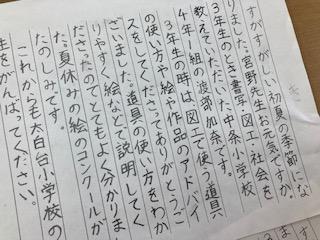 すがすがしい初夏の季節にな
りました。宮野先生お元気ですか。
3年生のとき書写・図工・社会を
教えていただいた中条小学校
4年1組の渡部加奈です。
3年生の時は、図工で使う道具
の使い方や絵や作品のアドバイ
スをしてくださってありがとうご
ざいました。道具の使い方をわか
りやすく絵などで説明してく
ださったのでとてもよく分かりまし
た。夏休みの絵のコンクールが
たのしみです。
これからも太白台小学校の
生をがんばってください。